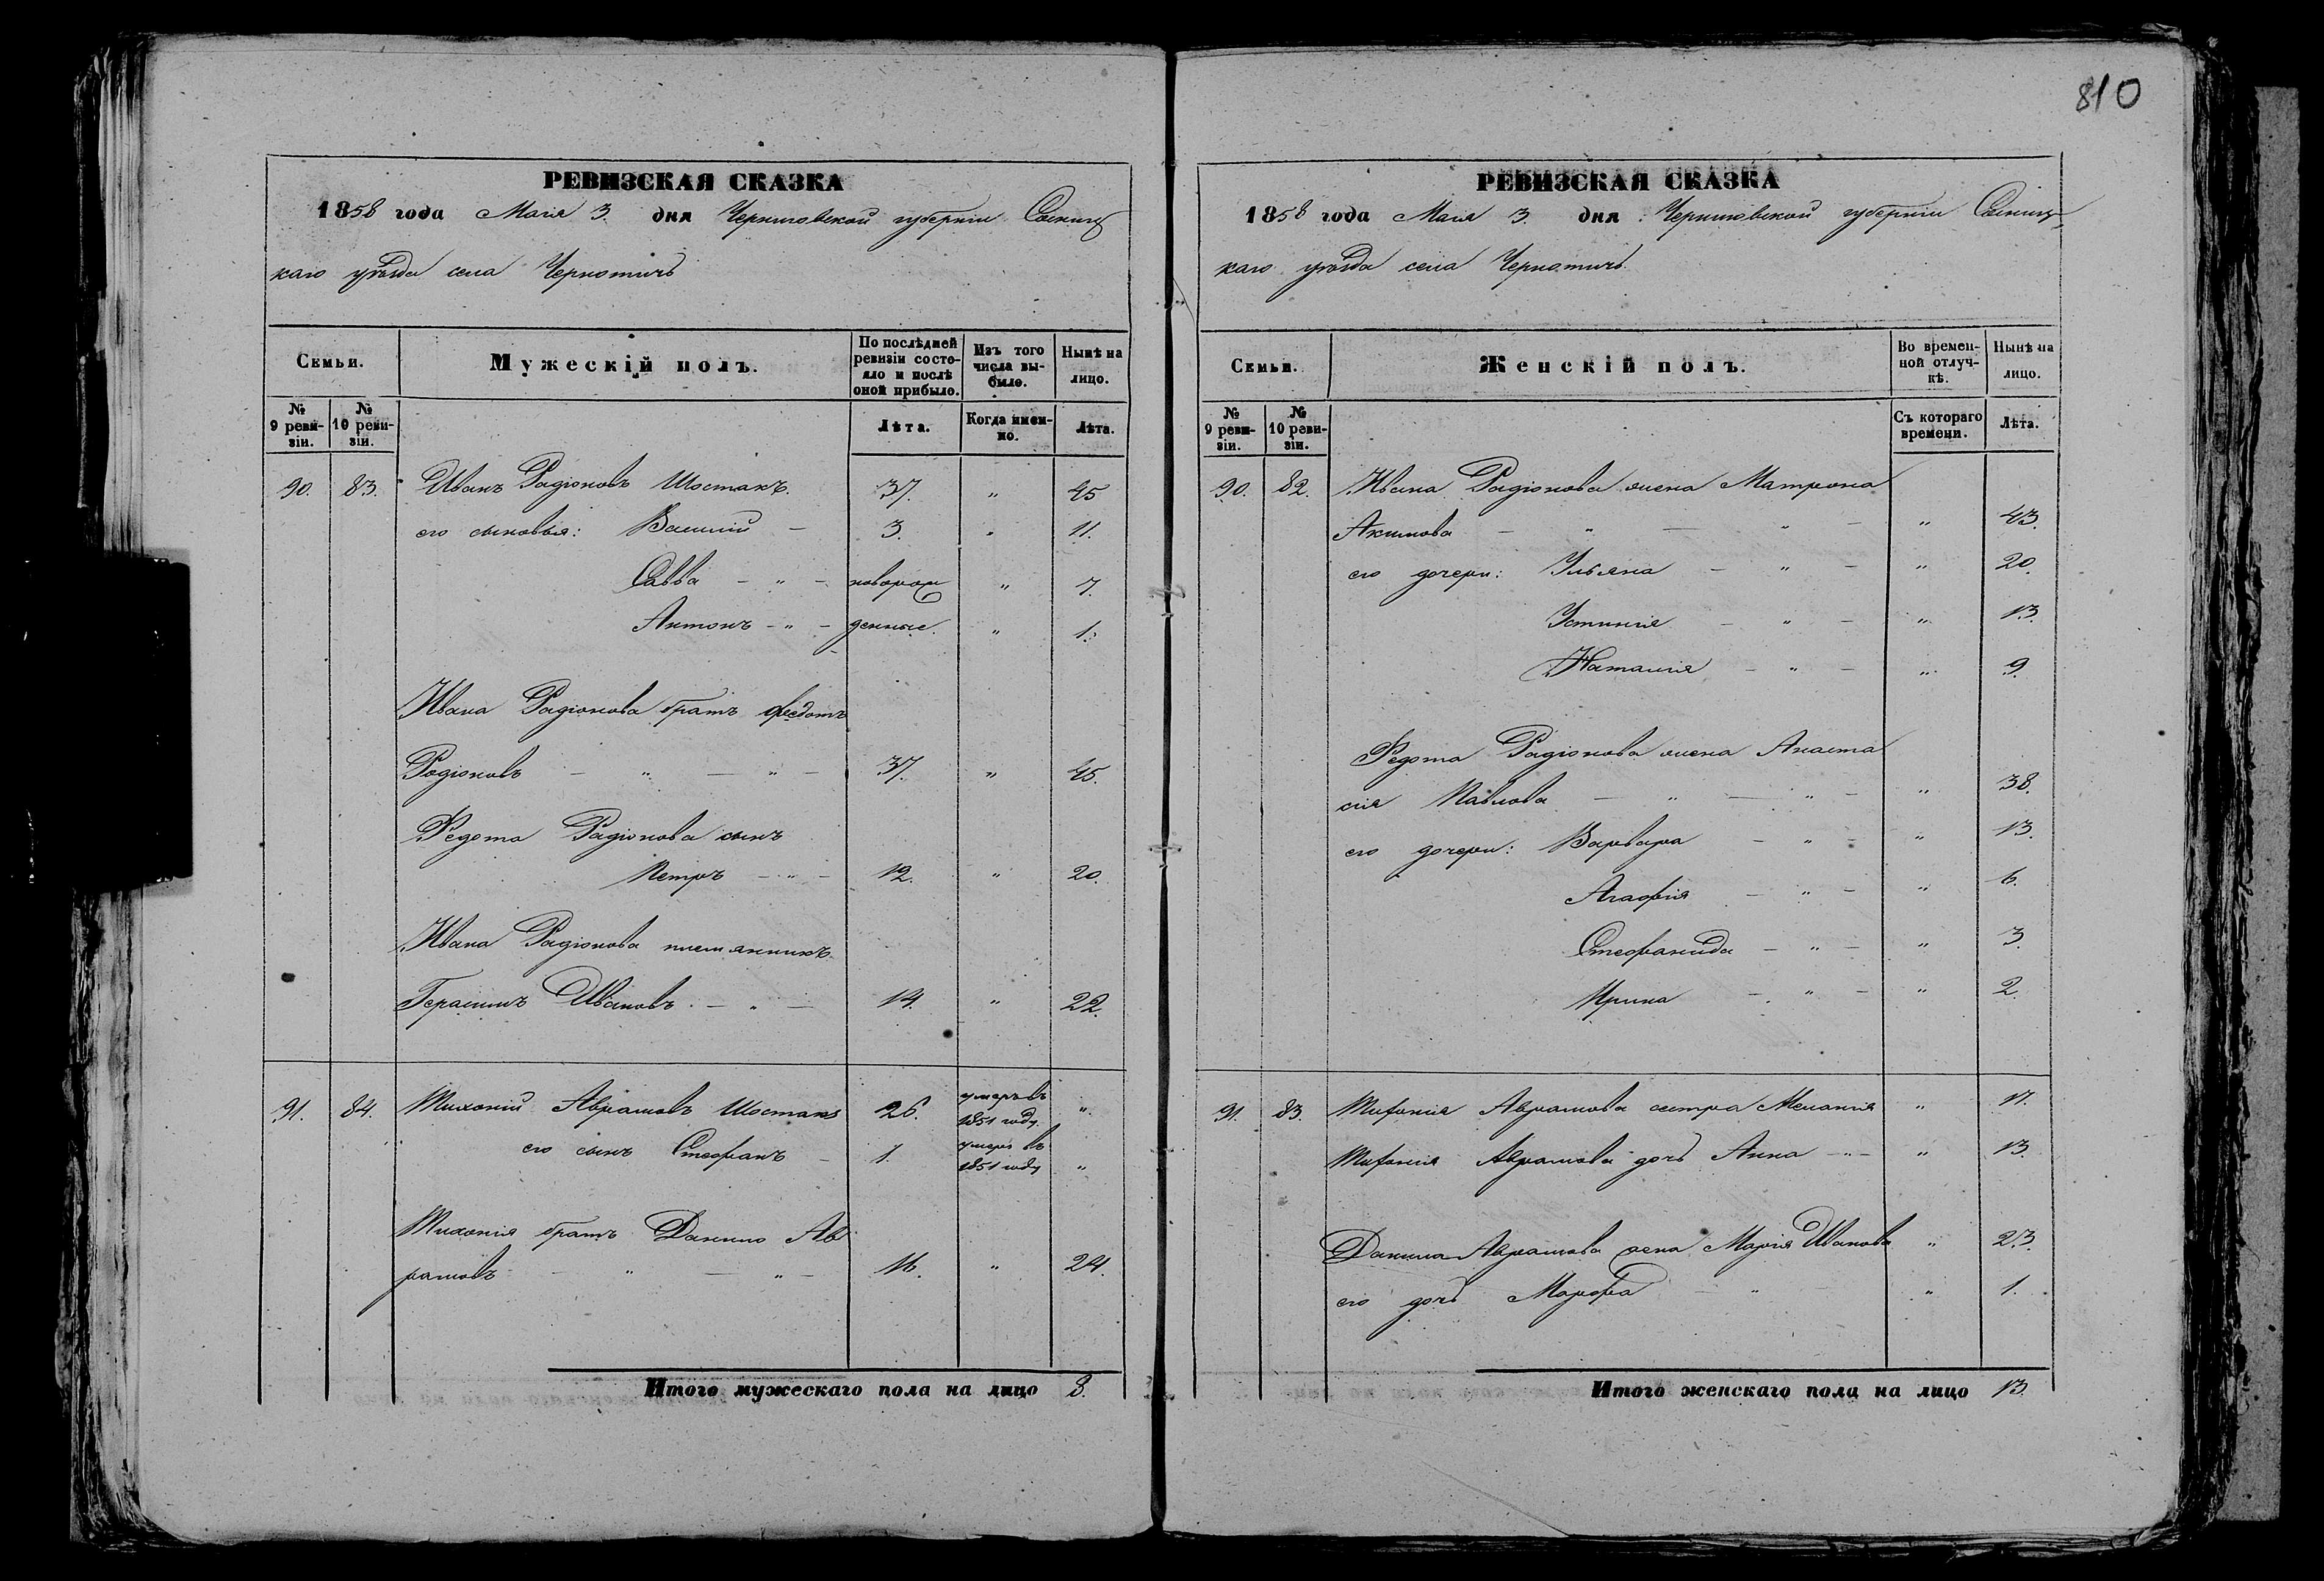 810
РЕВИЗСКАЯ СКАЗКА
1858 года Мая 3. дня Черниговской губерніи Сосниц
каго уѣзда села Чернотичъ
Семьи.
Мужескій полъ.
По послѣдней ревизіи состояло и послѣ оной прибыло.
Изъ того числа выбыло.
Нынѣ на лицо.
№ 9 ревизіи.
№ 10 ревизіи.
Лѣта.
Когда именно.
Лѣта.
90. 83. Иванъ Радіоновъ Шостакъ. 37. " 45
его сыновья: Василій — 3. " 11.
Савва — " — новорож " 7.
Антонъ — " — денные. " 1.
Ивана Радіонова братъ Федотъ
Родіоновъ — " — " — 37. " 45.
Федота Радіонова сынъ
Петръ — " — 12. " 20.
Ивана Радіонова племянникъ
Герасимъ Ивановъ. — " — 14. " 22.
91. 84. Тихоній Аврамовъ Шостакъ 26. умеръ въ 1851 году. "
его сынъ Стефанъ — 1. умеръ въ 1851 году "
Тихонія братъ Данило Ав
рамовъ — " — " — 16. " 24.
Итого мужескаго пола на лицо 8.
РЕВИЗСКАЯ СКАЗКА
1858 года Мая 3. дня Черниговской губерніи Сосниц
каго уѣзда села Чернотичъ.
Семьи.
Женскій полъ.
Во временной отлучкѣ.
Нынѣ на лицо.
№ 9 ревизіи.
№ 10 ревизіи.
Съ котораго времени.
Лѣта.
90. 82. Ивана Радіонова жена Матрона
Акимова — " — " — " 43.
его дочери: Ульяна — " — " 20.
Устинія — " — " 13.
Наталія — " — " 9.
Федота Радіонова жена Анаста
сія Павлова — " — " — " 38.
его дочери: Варвара — " — " 13.
Агафія — " — " 6.
Стефанида — " — " 3.
Ирина — " — " 2.
91. 83. Тихонія Аврамова сестра Меланія " 17.
Тихонія Аврамова дочь Анна — " — " 13.
Данила Аврамова жена Марія Иванова " 23.
его дочь Марфа — " — " 1.
Итого женскаго пола на лицо 13.